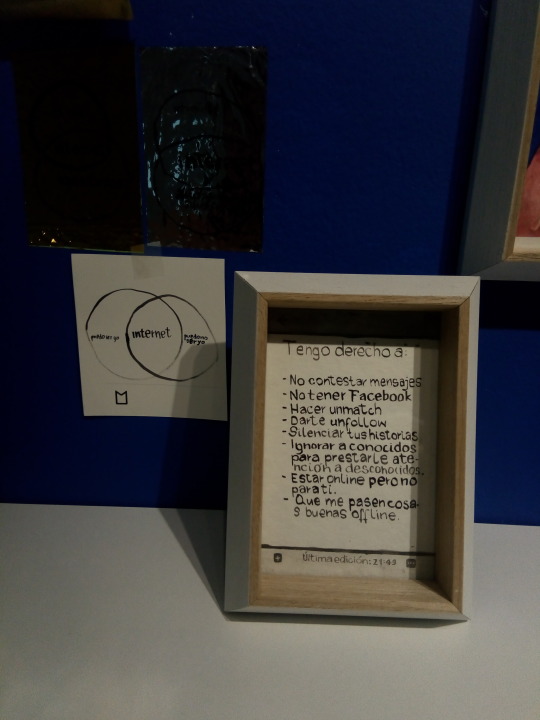 puedo ser yo
internet
puedo no
ser yo
Tengo derecho a:
- No contestar mensajes
- No tener Facebook
- Hacer unmatch
- Darte unfollow
- Silenciar tus historias
- Ignorar a conocidos
para prestarle ate-
nción a desconocidos.
- Estar online pero no
para ti.
- Que me pasen cosa-
s buenas offline.
Última edición: 21:49